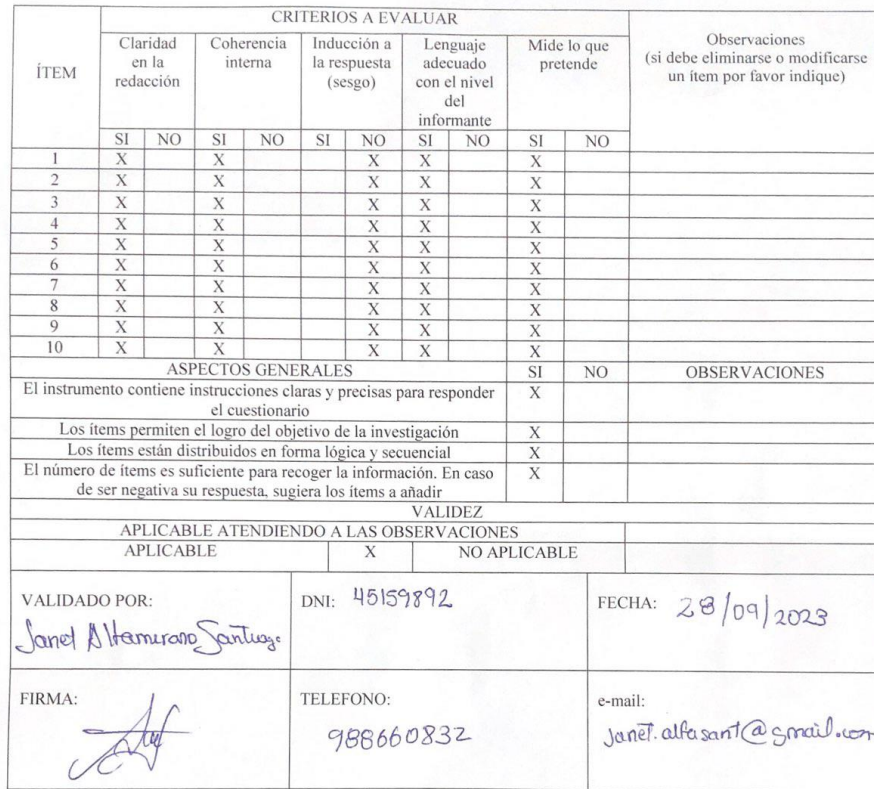 CRITERIOS A EVALUAR
ÍTEM
Claridad
en la
redacción
Coherencia
interna
Inducción a
la respuesta
(sesgo)
Lenguaje
adecuado
con el nivel
del
informante
Mide lo que
pretende
Observaciones
(si debe eliminarse o modificarse
un ítem por favor indique)
SI NO SI NO SI NO SI NO SI NO
1 X X X X X
2 X X X X X
3 X X X X X
4 X X X X X
5 X X X X X
6 X X X X X
7 X X X X X
8 X X X X X
9 X X X X X
10 X X X X X
ASPECTOS GENERALES SI NO OBSERVACIONES
El instrumento contiene instrucciones claras y precisas para responder X
el cuestionario
Los ítems permiten el logro del objetivo de la investigación X
Los ítems están distribuidos en forma lógica y secuencial X
El número de ítems es suficiente para recoger la información. En caso X
de ser negativa su respuesta, sugiera los ítems a añadir
VALIDEZ
APLICABLE ATENDIENDO A LAS OBSERVACIONES
APLICABLE X NO APLICABLE
VALIDADO POR:
Janet Altamirano Santiago
DNI: 45159892
FECHA: 28/09/2023
FIRMA:
TELEFONO:
988660832
e-mail:
janet.alfasant@gmail.com